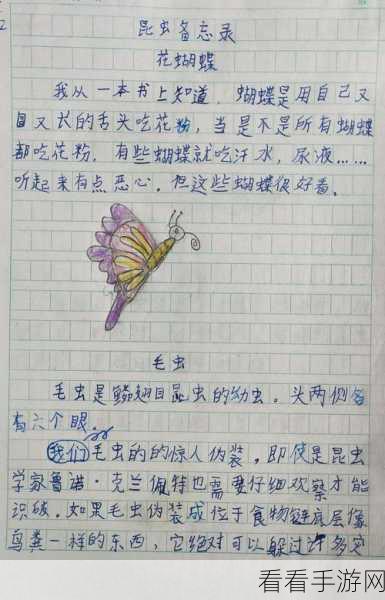 昆虫备忘录
花蝴蝶
我从一本书上知道，蝴蝶是用自己又
又长的舌头吃花粉，当是不是所有蝴蝶
都吃花粉，有些蝴蝶就吃汗水，尿液……
听起来有点恶心。但这些蝴蝶很好看。
毛虫
毛虫是鳞翅目昆虫的幼虫。头两侧各
有六个眼。
我们毛虫的的惊人伪装，即使是昆虫
学家鲁诺·克兰佩特也需要仔细观察才能
识破。如果毛虫伪装成位于食物链底层像
鸟粪一样的东西，它绝对可以躲过许多灾
看看手游网